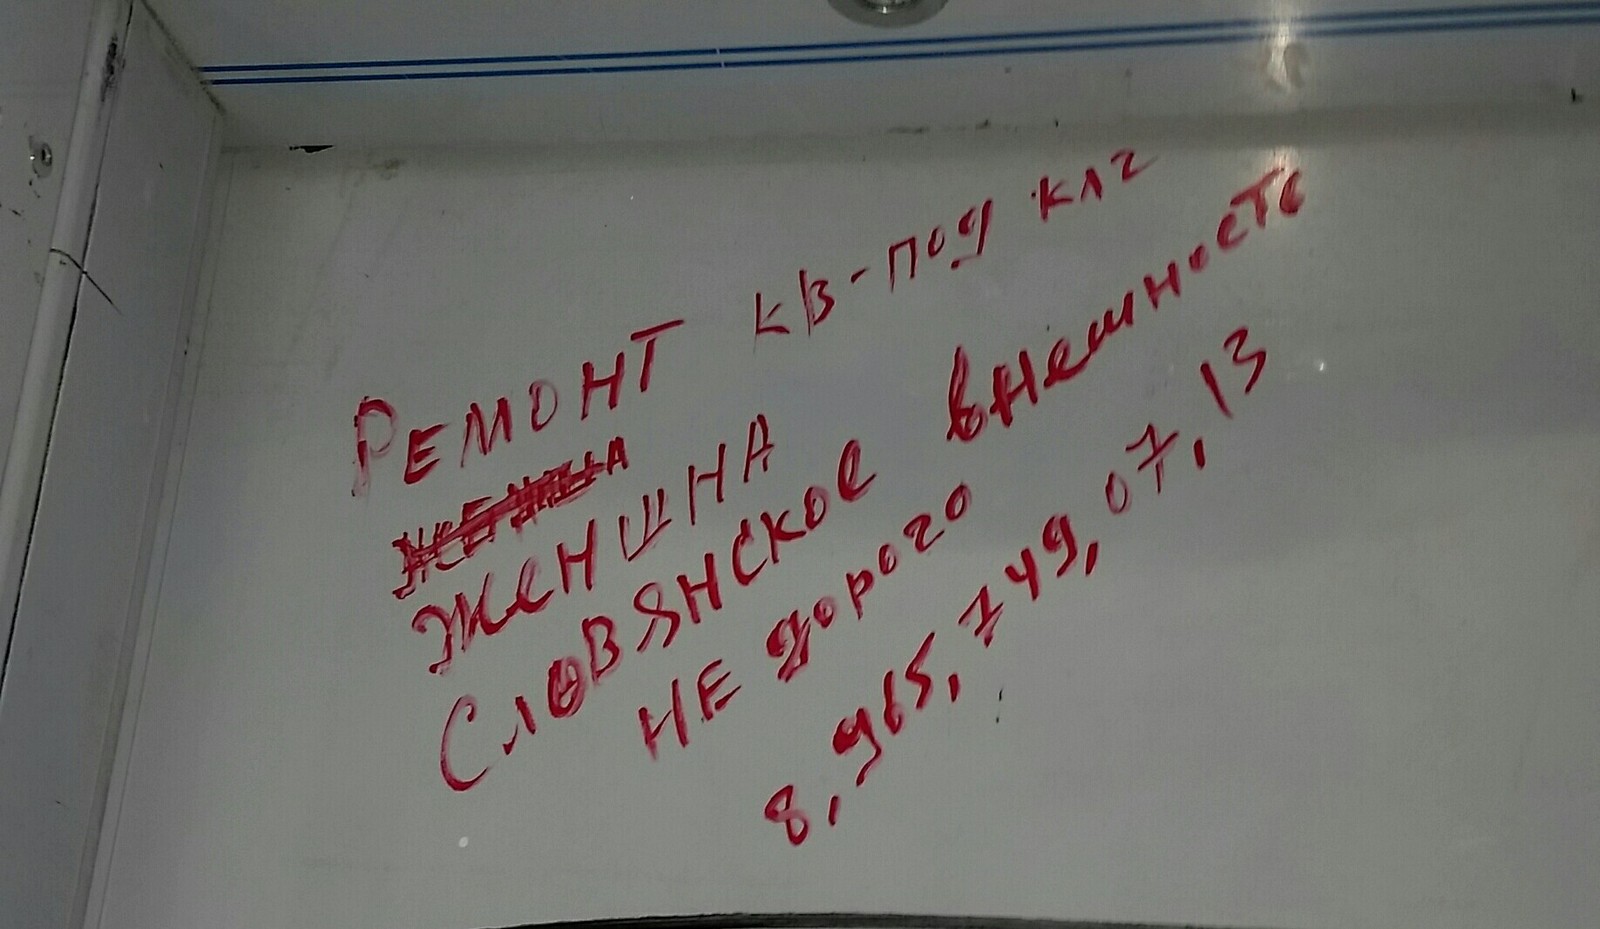 РЕМОНТ КВ-ПОД КЛЧ
ЖЕНШНА
СЛОВЯНСКОЕ внешность
НЕ дорого
8,965,749,07,13